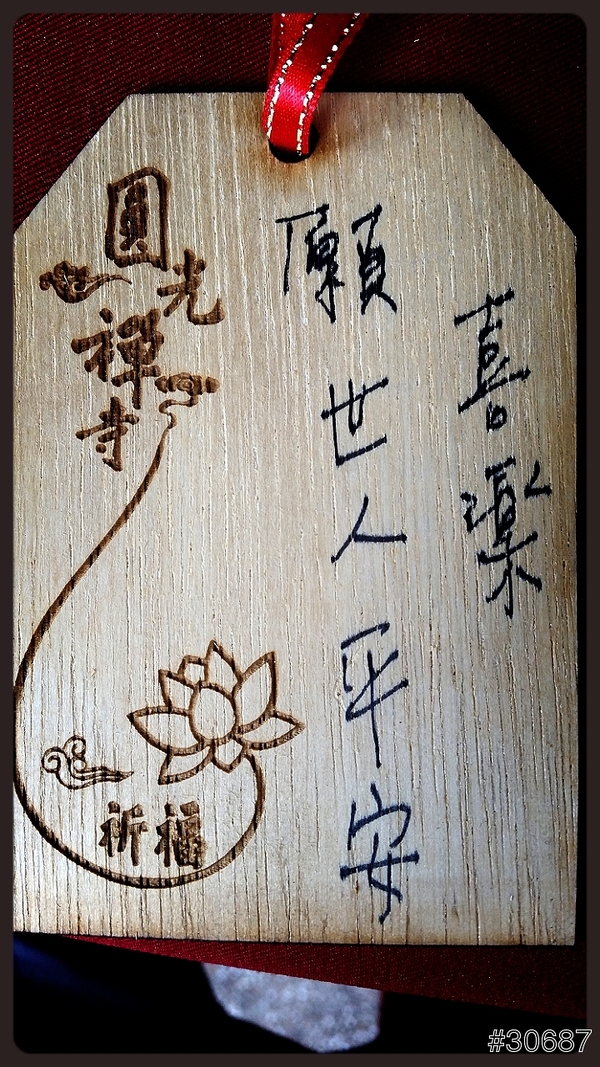 圓光禪寺
祈福
願世人平安
喜樂
#30687